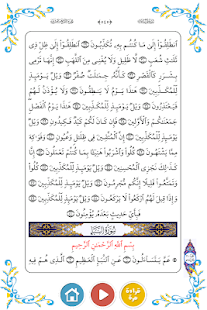 ٱنطَلِقُوٓا۟ إِلَىٰ مَا كُنتُم بِهِۦ تُكَذِّبُونَ ٱنطَلِقُوٓا۟ إِلَىٰ ظِلٍّ ذِى
ثَلَٰثِ شُعَبٍ لَّا ظَلِيلٍ وَلَا يُغْنِى مِنَ ٱللَّهَبِ إِنَّهَا تَرْمِى
بِشَرَرٍ كَٱلْقَصْرِ كَأَنَّهُۥ جِمَٰلَتٌ صُفْرٌ وَيْلٌ يَوْمَئِذٍ
لِّلْمُكَذِّبِينَ هَٰذَا يَوْمُ لَا يَنطِقُونَ وَلَا يُؤْذَنُ لَهُمْ
فَيَعْتَذِرُونَ وَيْلٌ يَوْمَئِذٍ لِّلْمُكَذِّبِينَ هَٰذَا يَوْمُ ٱلْفَصْلِ
جَمَعْنَٰكُمْ وَٱلْأَوَّلِينَ فَإِن كَانَ لَكُمْ كَيْدٌ فَكِيدُونِ وَيْلٌ
يَوْمَئِذٍ لِّلْمُكَذِّبِينَ إِنَّ ٱلْمُتَّقِينَ فِى ظِلَٰلٍ وَعُيُونٍ وَفَوَٰكِهَ
مِمَّا يَشْتَهُونَ كُلُوا۟ وَٱشْرَبُوا۟ هَنِيٓـًٔۢا بِمَا كُنتُمْ تَعْمَلُونَ إِنَّا
كَذَٰلِكَ نَجْزِى ٱلْمُحْسِنِينَ وَيْلٌ يَوْمَئِذٍ لِّلْمُكَذِّبِينَ كُلُوا۟
وَتَمَتَّعُوا۟ قَلِيلًا إِنَّكُم مُّجْرِمُونَ وَيْلٌ يَوْمَئِذٍ لِّلْمُكَذِّبِينَ
وَإِذَا قِيلَ لَهُمُ ٱرْكَعُوا۟ لَا يَرْكَعُونَ وَيْلٌ يَوْمَئِذٍ لِّلْمُكَذِّبِينَ
فَبِأَىِّ حَدِيثٍۭ بَعْدَهُۥ يُؤْمِنُونَ
سُورَةُ النَّبَإِ
بِسْمِ ٱللَّهِ ٱلرَّحْمَٰنِ ٱلرَّحِيمِ
عَمَّ يَتَسَآءَلُونَ عَنِ ٱلنَّبَإِ ٱلْعَظِيمِ ٱلَّذِى هُمْ فِيهِ
قراءة
حرة